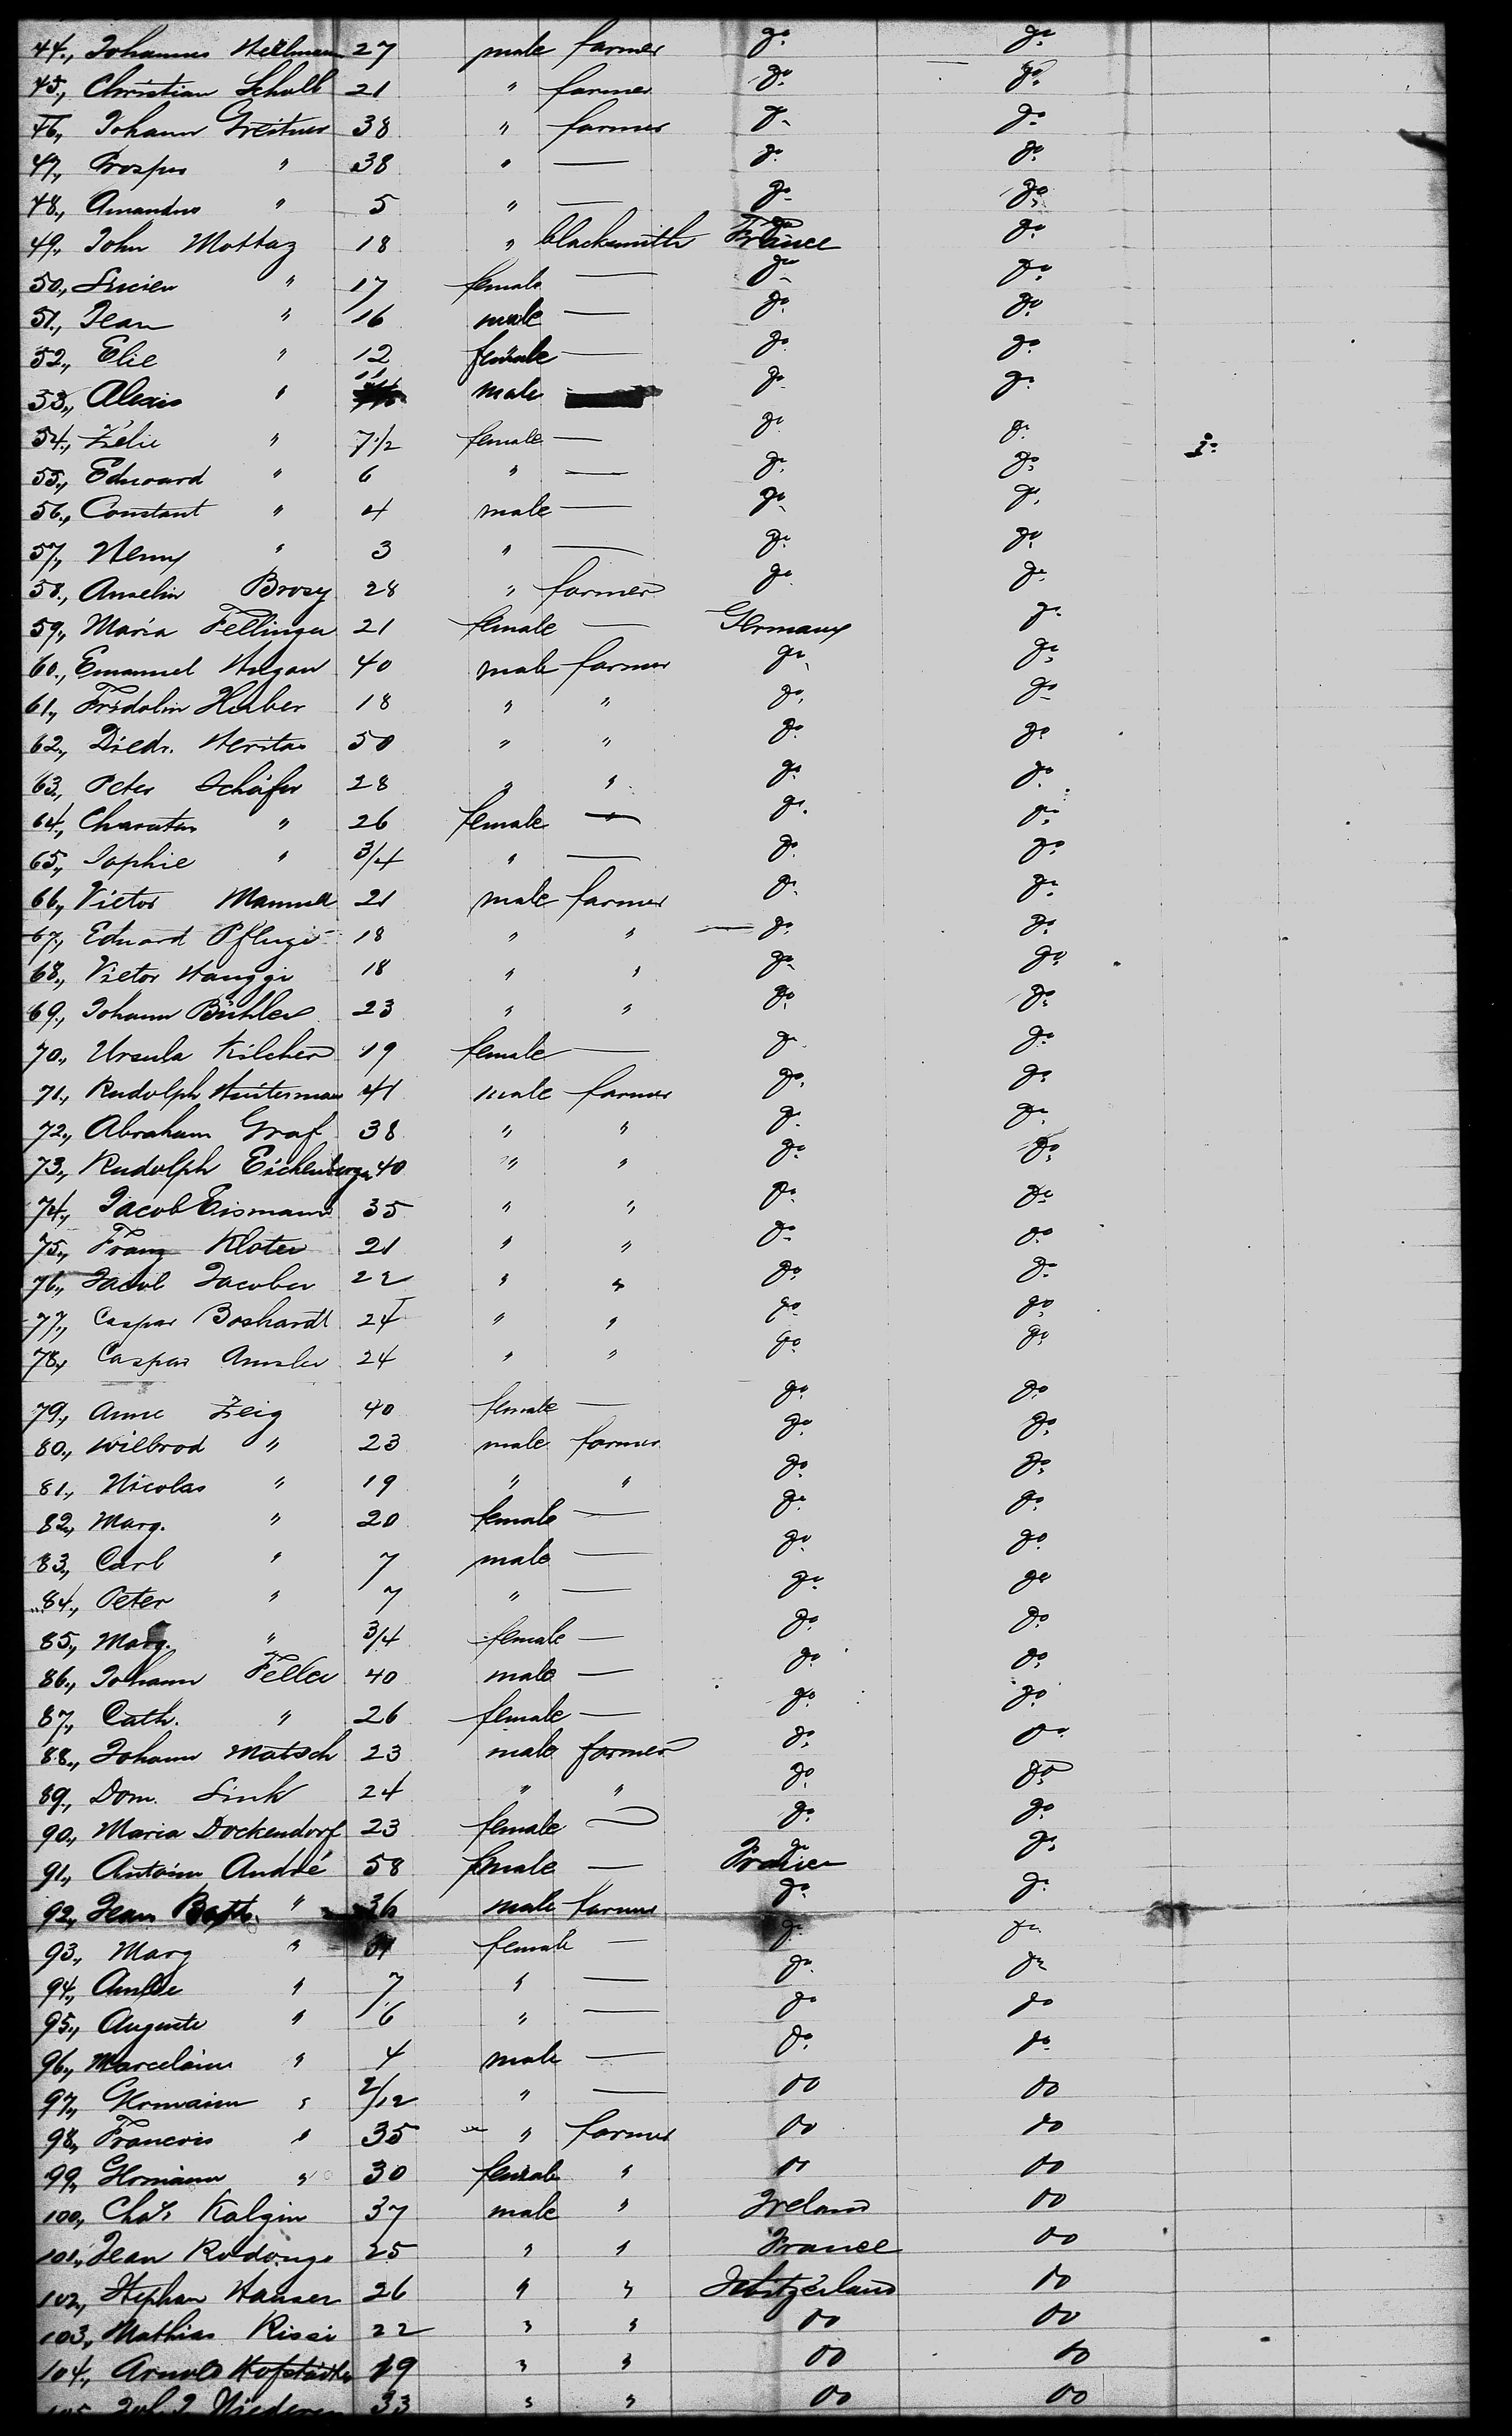 44., Johannes Hellman 27 male farmer do. do.
45., Christian Scholl 21 " farmer do. do.
46., Johann Greitner 38 " farmer do. do.
47., Prosper " 38 " — do. do.
48., Amandus " 5 " — do. do.
49., John Mottaz 18 " blacksmith France do.
50., Lucien " 17 female — do. do.
51., Jean " 16 male — do. do.
52., Elie " 12 female — do. do.
53., Alexis " 11 male do. do.
54., Zélie " 7 1/2 female — do. do.
55., Edward " 6 " — do. do.
56., Constant " 4 male — do. do.
57., Henry " 3 " — do. do.
58., Anselin Brosy 28 " farmer do. do.
59., Maria Fellinger 21 female — Germany do.
60., Emanuel 40 male farmer do. do.
61., Fridolin Huber 18 " " do. do.
62., Diedr. 50 " " do. do.
63., Peter Schäfer 28 " " do. do.
64., 26 female — do. do.
65., Sophie " 3/4 " — do. do.
66., Victor 21 male farmer do. do.
67., Eduard Pfluger 18 " " do. do.
68., Victor Hanggi 18 " " do. do.
69., Johann Bühler 23 " " do. do.
70., Ursula Kilcher 19 female — do. do.
71., Rudolph Hinterman 41 male farmer do. do.
72., Abraham Graf 38 " " do. do.
73., Rudolph Eichenberger 40 " " do. do.
74., Jacob Eismann 35 " " do. do.
75., Franz Kloter 21 " " do. do.
76., Jacob Jacober 22 " " do. do.
77., Caspar Boshardt 24 " " do. do.
78., Caspar Amsler 24 " " do. do.
79., Anne Zeig 40 female — do. do.
80., Wilbrod " 23 male farmer do. do.
81., Nicolas " 19 " " do. do.
82., Marg. " 20 female — do. do.
83., Carl " 7 male — do. do.
84., Peter " 7 " — do. do.
85., Marg. " 3/4 female — do. do.
86., Johann Feller 40 male — do. do.
87., Cath. " 26 female — do. do.
88., Johann Matsch 23 male farmer do. do.
89., Dom. Link 24 " " do. do.
90., Maria Dockendorf 23 female — do. do.
91., Antoine André 58 female — France do.
92., Jean Bapt. " 36 male farmer do. do.
93., Marg " female — do. do.
94., " 7 " — do. do.
95., Auguste " 6 " — do. do.
96., Marcelain " 4 male — do. do.
97., Germain " 2/12 " — do do
98., Francois " 35 " farmer do do
99., Germain " 30 female " do do
100., Chas. Kalgin 37 male " Ireland do
101., Jean Rodonge 25 " " France do
102., Stephan Hauser 26 " " Switzerland do
103., Mathias Rissi 22 " " do do
104., Arnold Hofstädter 19 " " do do
33 " " do do